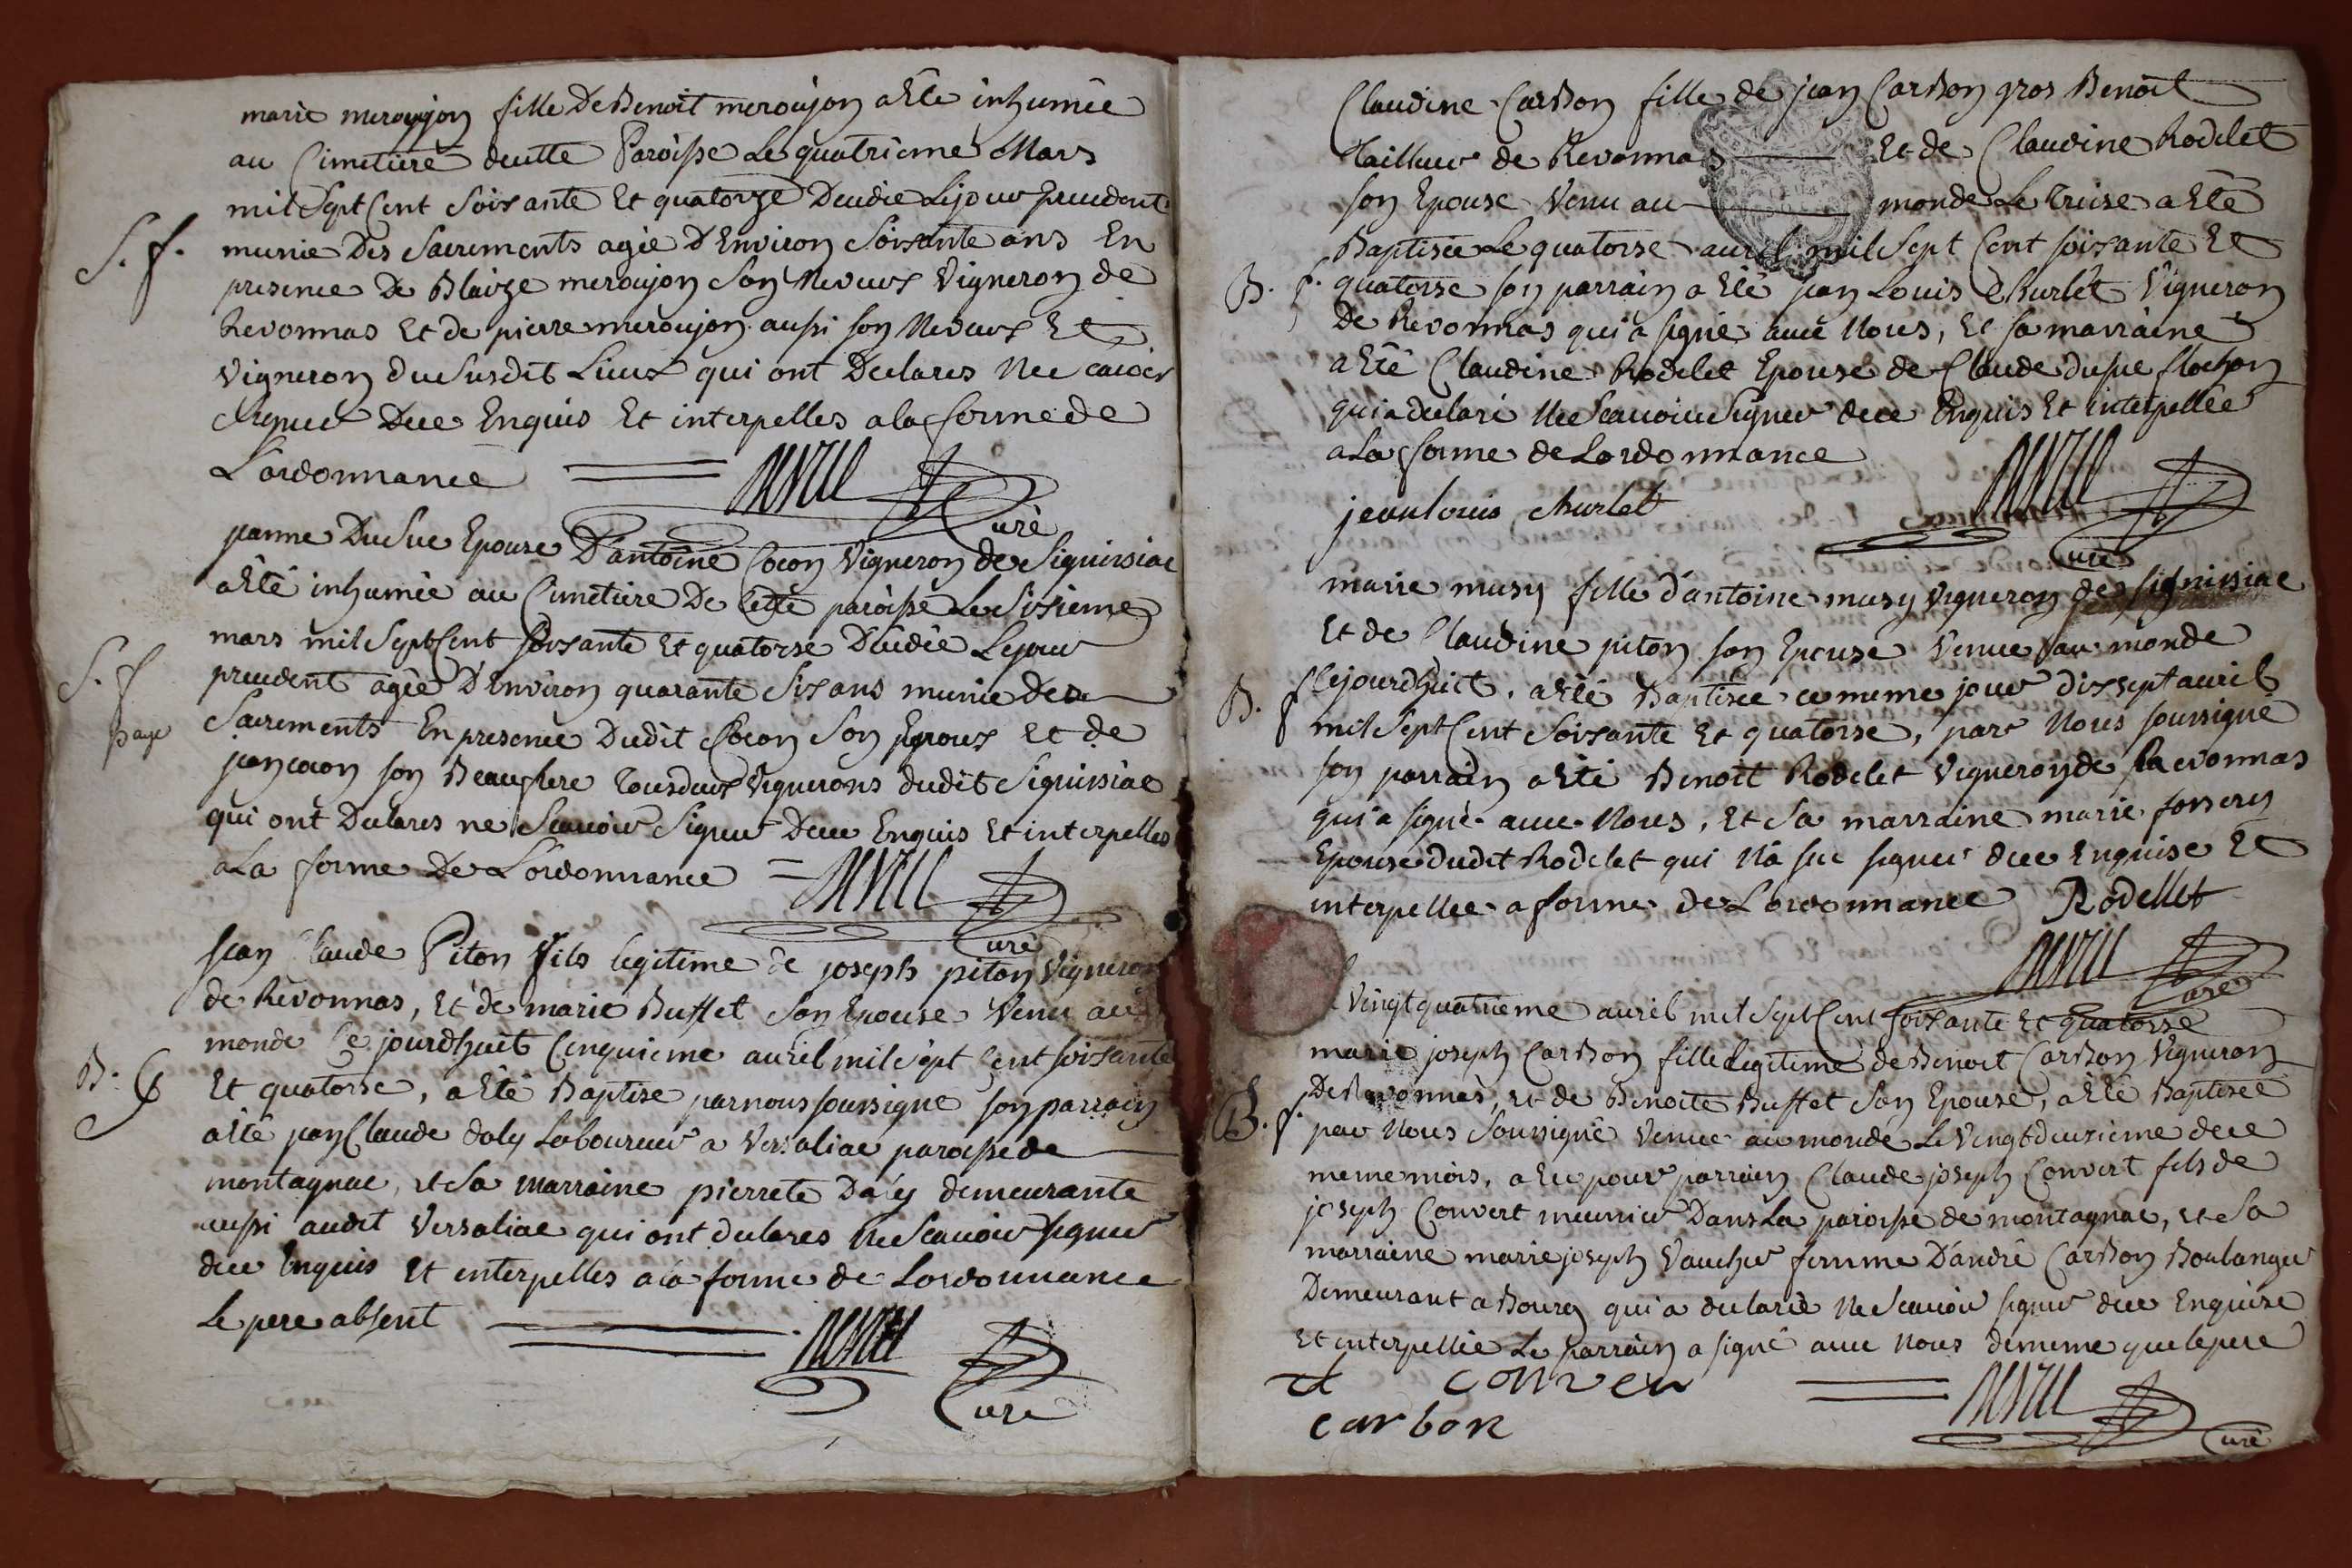 marie meroujon fille De Benoit meroujon a Ete inhumée
au Cimetiere de cette Paroisse Le quatrieme Mars
mil Sept Cent Soixante Et quatorze Decedie Le jour precedent
S. f.
munie Des Sacrements agée D'Environ Soixante ans En
presence De Blaize meroujon Son Neveux Vigneron de
Revonnas Et de pierre meroujon aussi son Neveux Et
Vigneron du Susdit Lieux qui ont Declares Ne
Signer De ce Enquis Et interpelles a la forme de
L'ordonnance
Curé
Dusuc Epouse D'antoine Cocon Vigneron de Signissiac
a Eté inhumée au Cimetiere De Cette paroisse Le Sixieme
mars mil Sept Cent Soixante Et quatorse Decedée Le jour
S. f
precedent agée D'Environ quarante Six ans munie Des
page
Sacrements En presence Dudit Cocon Son Epoux Et de
jean cocon son Beaufrere Tous deux Vignerons dudit Signissiac
qui ont Declares ne Scavoir Signer De ce Enquis Et interpelles
a La forme De L'ordonnance
Curé
jean Claude Piton fils legitime de joseph piton Vigneron
de Revonnas, Et de marie Buffet Son Epouse Venu au
monde Ce jourdhuit Cinquieme avril mil Sept Cent soixante
B. G
Et quatorse, a Eté Baptise par nous soussigne son parrain
a Eté jean Claude daly Laboureur a Versaliac paroisse de
montagnac, et Sa marraine pierrete Daly demeurante
aussi audit Versaliac qui ont declares Ne Scavoir signer
de ce Enquis Et interpelles a la forme de Lordonnance
Le pere absent
Curé
Claudine Carbon fille de jean Carbon gros Benoit
Tailleur de Revonnas Et de Claudine Rodelet
son Epouse Venu au monde Le treise a Eté
Baptisée Le quatorse avril mil Sept Cent soixante Et
B. f.
quatorse son parrain a Eté jean Louis Churlet Vigneron
De Revonnas qui a signé avec Nous, Et sa marraine
a Eté Claudine Rodelet Epouse de Claude dusuc
qui a declaré Ne Scavoir Signer de ce Enquis Et interpellée
a La forme de Lordonnance
jean louis churlet
Curé
marie musy fille d'antoine musy vigneron de signissiac
Et de Claudine piton son Epouse Venue au monde
B. f
Cejourdhuit, a Eté Baptisée ce meme jour dix sept avril
mil Sept Cent Soixante Et quatorse, par Nous soussigné
son parrain a Eté Benoit Rodelet Vigneron de Revonnas
qui a signé avec Nous, Et Sa marraine marie
Epouse dudit Rodelet qui N'a sue signer de ce Enquise Et
interpellée a forme de Lordonnance Rodellet
Curé
Vingt quatrieme avril mil Sept Cent soixante Et quatorse
marie joseph Carbon fille Legitime de Benoit Carbon Vigneron
De Revonnas, et de Benoite Buffet Son Epouse, a Eté Baptisée
B. f.
par Nous Soussigné Venue au monde Le Vingt deuxieme de ce
meme mois, a Eu pour parrain Claude joseph Convert fils de
joseph Convert meunier Dans La paroisse de montagnac, et Sa
marraine marie joseph Vaucher femme D'andré Carbon Boulanger
Demeurant a Bourg qui a declaré Ne Scavoir signer de ce Enquise
Et interpellée Le parrain a signé avec Nous dememe que le pere
carbon
Curé